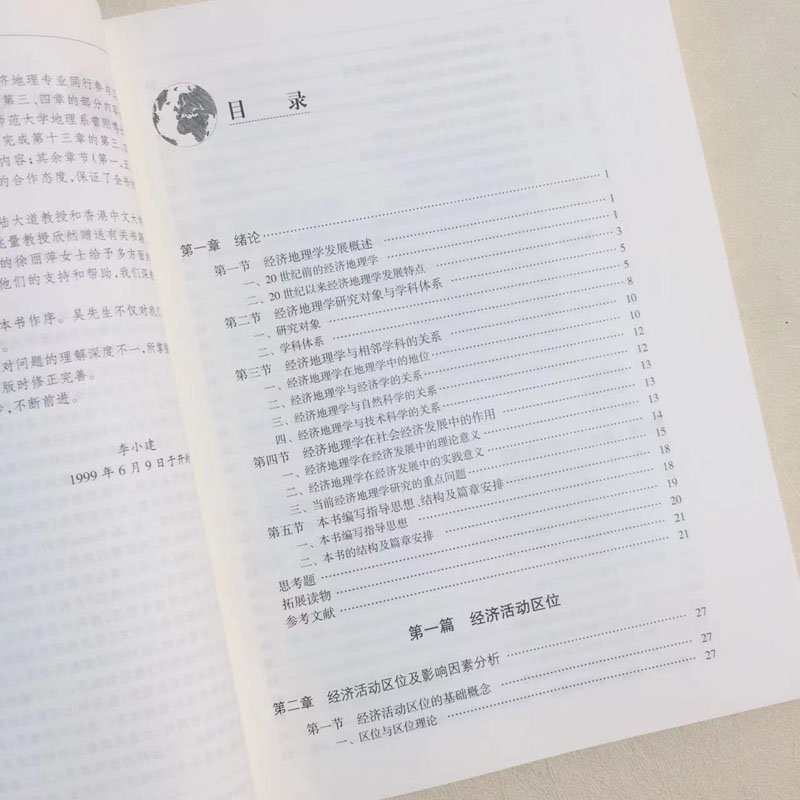 济地理专业同行参与
第三、四章的部分内容
师范大学地理系曾刚博
完成第十三章的第三、
内容;其余章节(第一、
的合作态度,保证了全书
陆大道教授和香港中文大
兆量教授欣然赠送有关书
的徐丽萍女士给予多方面
他们的支持和帮助,我们深
本书作序。吴先生不仅对我
。
对问题的理解深度不一,所掌
版时修正完善。
,不断前进。
李小建
1999 年 6 月 9 日于开
目 录
第一章 绪论 1
第一节 经济地理学发展概述 1
一、20 世纪前的经济地理学 1
二、20 世纪以来经济地理学发展特点 3
第二节 经济地理学研究对象与学科体系 5
一、研究对象 5
二、学科体系 8
第三节 经济地理学与相邻学科的关系 10
一、经济地理学在地理学中的地位 10
二、经济地理学与经济学的关系 12
三、经济地理学与自然科学的关系 12
四、经济地理学与技术科学的关系 13
第四节 经济地理学在社会经济发展中的作用 13
一、经济地理学在经济发展中的理论意义 13
二、经济地理学在经济发展中的实践意义 14
三、当前经济地理学研究的重点问题 15
第五节 本书编写指导思想、结构及篇章安排 18
一、本书编写指导思想 18
二、本书的结构及篇章安排 19
思考题 20
拓展读物 21
参考文献 21
第一篇 经济活动区位
第二章 经济活动区位及影响因素分析 27
第一节 经济活动区位的基础概念 27
一、区位与区位理论 27